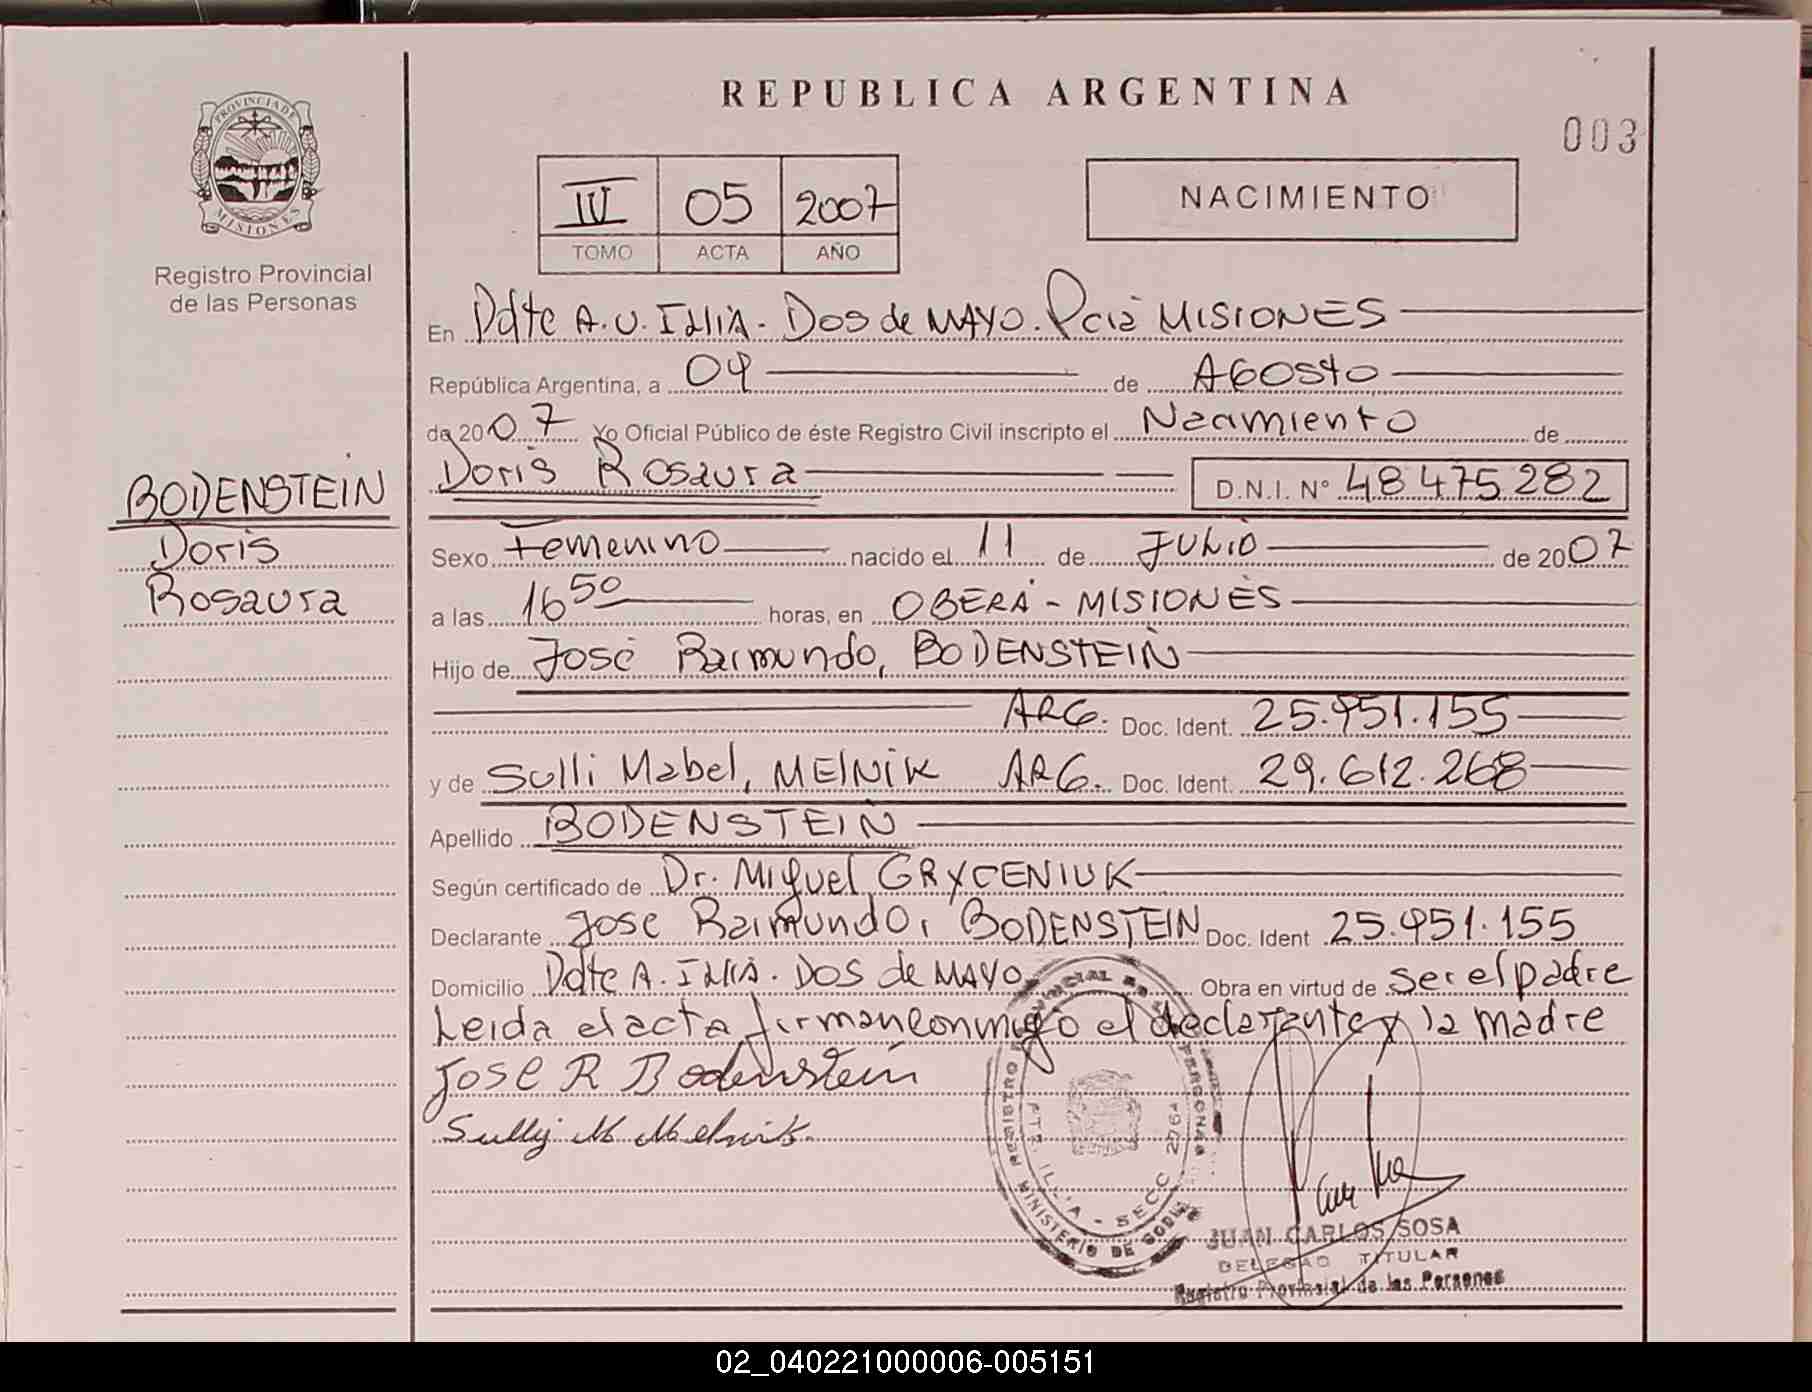 REPUBLICA ARGENTINA
003
PROVINCIA DE
MISIONES
Registro Provincial
de las Personas
IV 05 2007
TOMO ACTA AÑO
NACIMIENTO
En Pdte A.U. Illia - Dos de MAYO. Pcia MISIONES
República Argentina, a 09 de AGOSTO
de 2007 Yo Oficial Público de éste Registro Civil inscripto el Nacimiento de
Doris Rosaura D.N.I. N° 48475282
BODENSTEIN
Doris
Rosaura
Sexo Femenino nacido el 11 de JULIO de 2007
a las 16 50 horas, en OBERÁ - MISIONES
Hijo de José Raimundo, BODENSTEIN
ARG. Doc. Ident. 25.951.155
y de Sulli Mabel, MElNiK ARG. Doc. Ident. 29.612.268
Apellido BODENSTEIN
Según certificado de Dr. Miguel GRYCENIUK
Declarante José Raimundo, BODENSTEIN Doc. Ident 25.951.155
Domicilio Pdte A. Illia. DOS de MAYO Obra en virtud de ser el padre
Leida el acta firman conmigo el declarante y la madre
José R Bodenstein
Sully M Melnik.
REGISTRO PROVINCIAL DE LAS PERSONAS
PTE. ILLIA - SECC 276
MINISTERIO DE GOBIE
JUAN CARLOS SOSA
DELEGADO TITULAR
Registro Provincial de las Personas
02_040221000006-005151